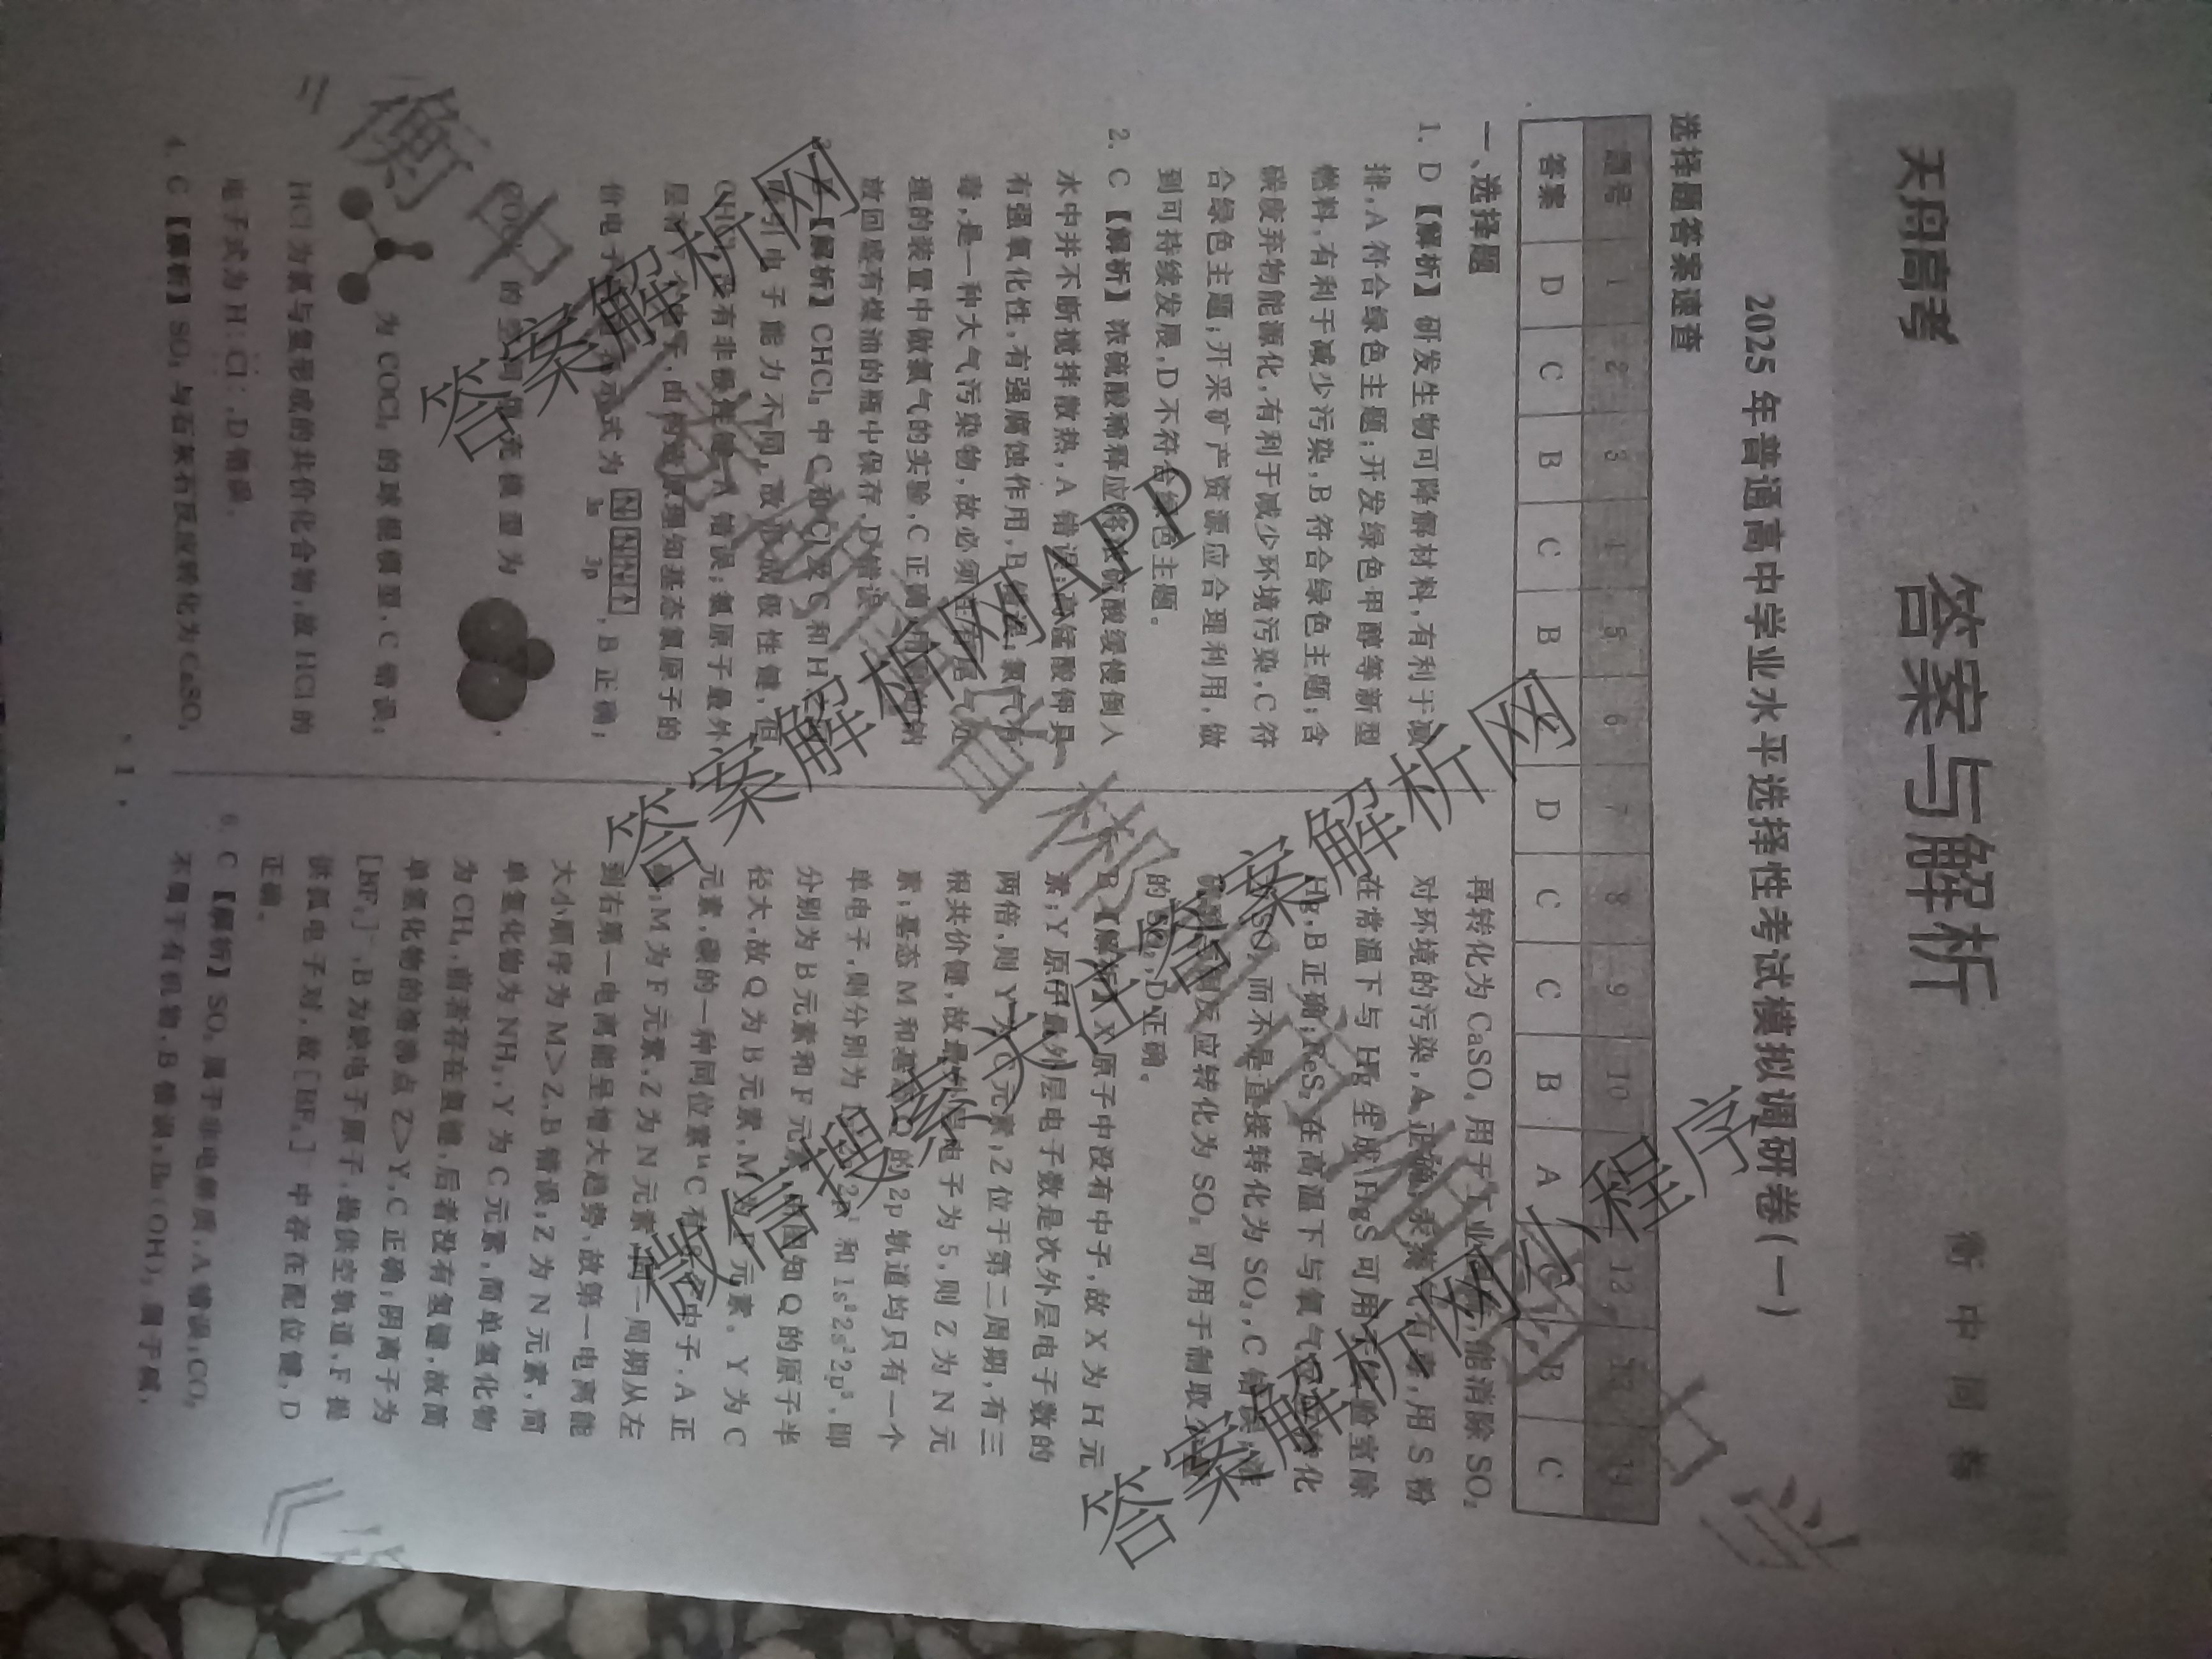 天舟高考
答案与解析
衡中同卷
2025年普通高中学业水平选择性考试模拟调研卷(一)
选择题答案速查
题号 1 2 3 4 5 6 7 8 9 10 12 13 14
答案 D C B C B C D C C B A B C
一、选择题
1. D 【解析】研发生物可降解材料,有利于减
排,A符合绿色主题;开发绿色甲醇等新型
燃料,有利于减少污染,B符合绿色主题;含
碳废弃物能源化,有利于减少环境污染,C符
合绿色主题;开采矿产资源应合理利用,做
到可持续发展,D不符合绿色主题。
2. C 【解析】浓硫酸稀释应将浓硫酸缓慢倒入
水中并不断搅拌散热,A错误;高锰酸钾具
有强氧化性,有强腐蚀作用,B错误;氯气有
毒,是一种大气污染物,故必须在有尾气处
理的装置中做氯气的实验,C正确;的钠
放回盛有煤油的瓶中保存,D错误。
【解析】CHCl₃中C和Cl及C和H
吸引电子能力不同,故形成极性键,但
CHCl₃没有非极性键,A错误;氯原子最外
层有7个电子,由构造原理知基态氯原子的
价电子轨道表示式为
3s 3p
,B正确;
COCl₂的空间填充模型为
,
为COCl₂的球棍模型,C错误;
HCl为氯与氢形成的共价化合物,故HCl的
电子式为H:Cl:,D错误。
4. C 【解析】SO₂与石灰石反应转化为CaSO₃
再转化为CaSO₄用于工业,能消除SO₂
对环境的污染,A正确;汞蒸气有毒,用S粉
在常温下与Hg生成HgS可用于实验室除
Hg,B正确;FeS₂在高温下与氧气反应转化
SO₂而不是直接转化为SO₃,C错误;
反应转化为SO₂可用于制取少量
的SO₂,D正确。
B 【解析】X原子中没有中子,故X为H元
素;Y原子最外层电子数是次外层电子数的
两倍,则Y为C元素;Z位于第二周期,有三
根共价键,故最外层电子为5,则Z为N元
素;基态M和基态Q的2p轨道均只有一个
单电子,则分别为1s²2s²2p¹和1s²2s²2p⁵,即
分别为B元素和F元素,由图知Q的原子半
径大,故Q为B元素,M为F元素。Y为C
元素,碳的一种同位素¹⁴C有8个中子,A正
确;M为F元素,Z为N元素,同一周期从左
到右第一电离能呈增大趋势,故第一电离能
大小顺序为M>Z,B错误;Z为N元素,简
单氢化物为NH₃,Y为C元素,简单氢化物
为CH₄,前者存在氢键,后者没有氢键,故简
单氢化物的熔沸点Z>Y,C正确;阴离子为
[BF₄]⁻,B为缺电子原子,提供空轨道,F提
供孤电子对,故[BF₄]⁻中存在配位键,D
正确。
6. C 【解析】SO₂属于非电解质,A错误;CO₂
不属于有机物,B错误;Ba(OH)₂属于碱,
· 1 ·
答案解析网
答案解析网APP
微信搜索关注答案解析网
答案解析网小程序